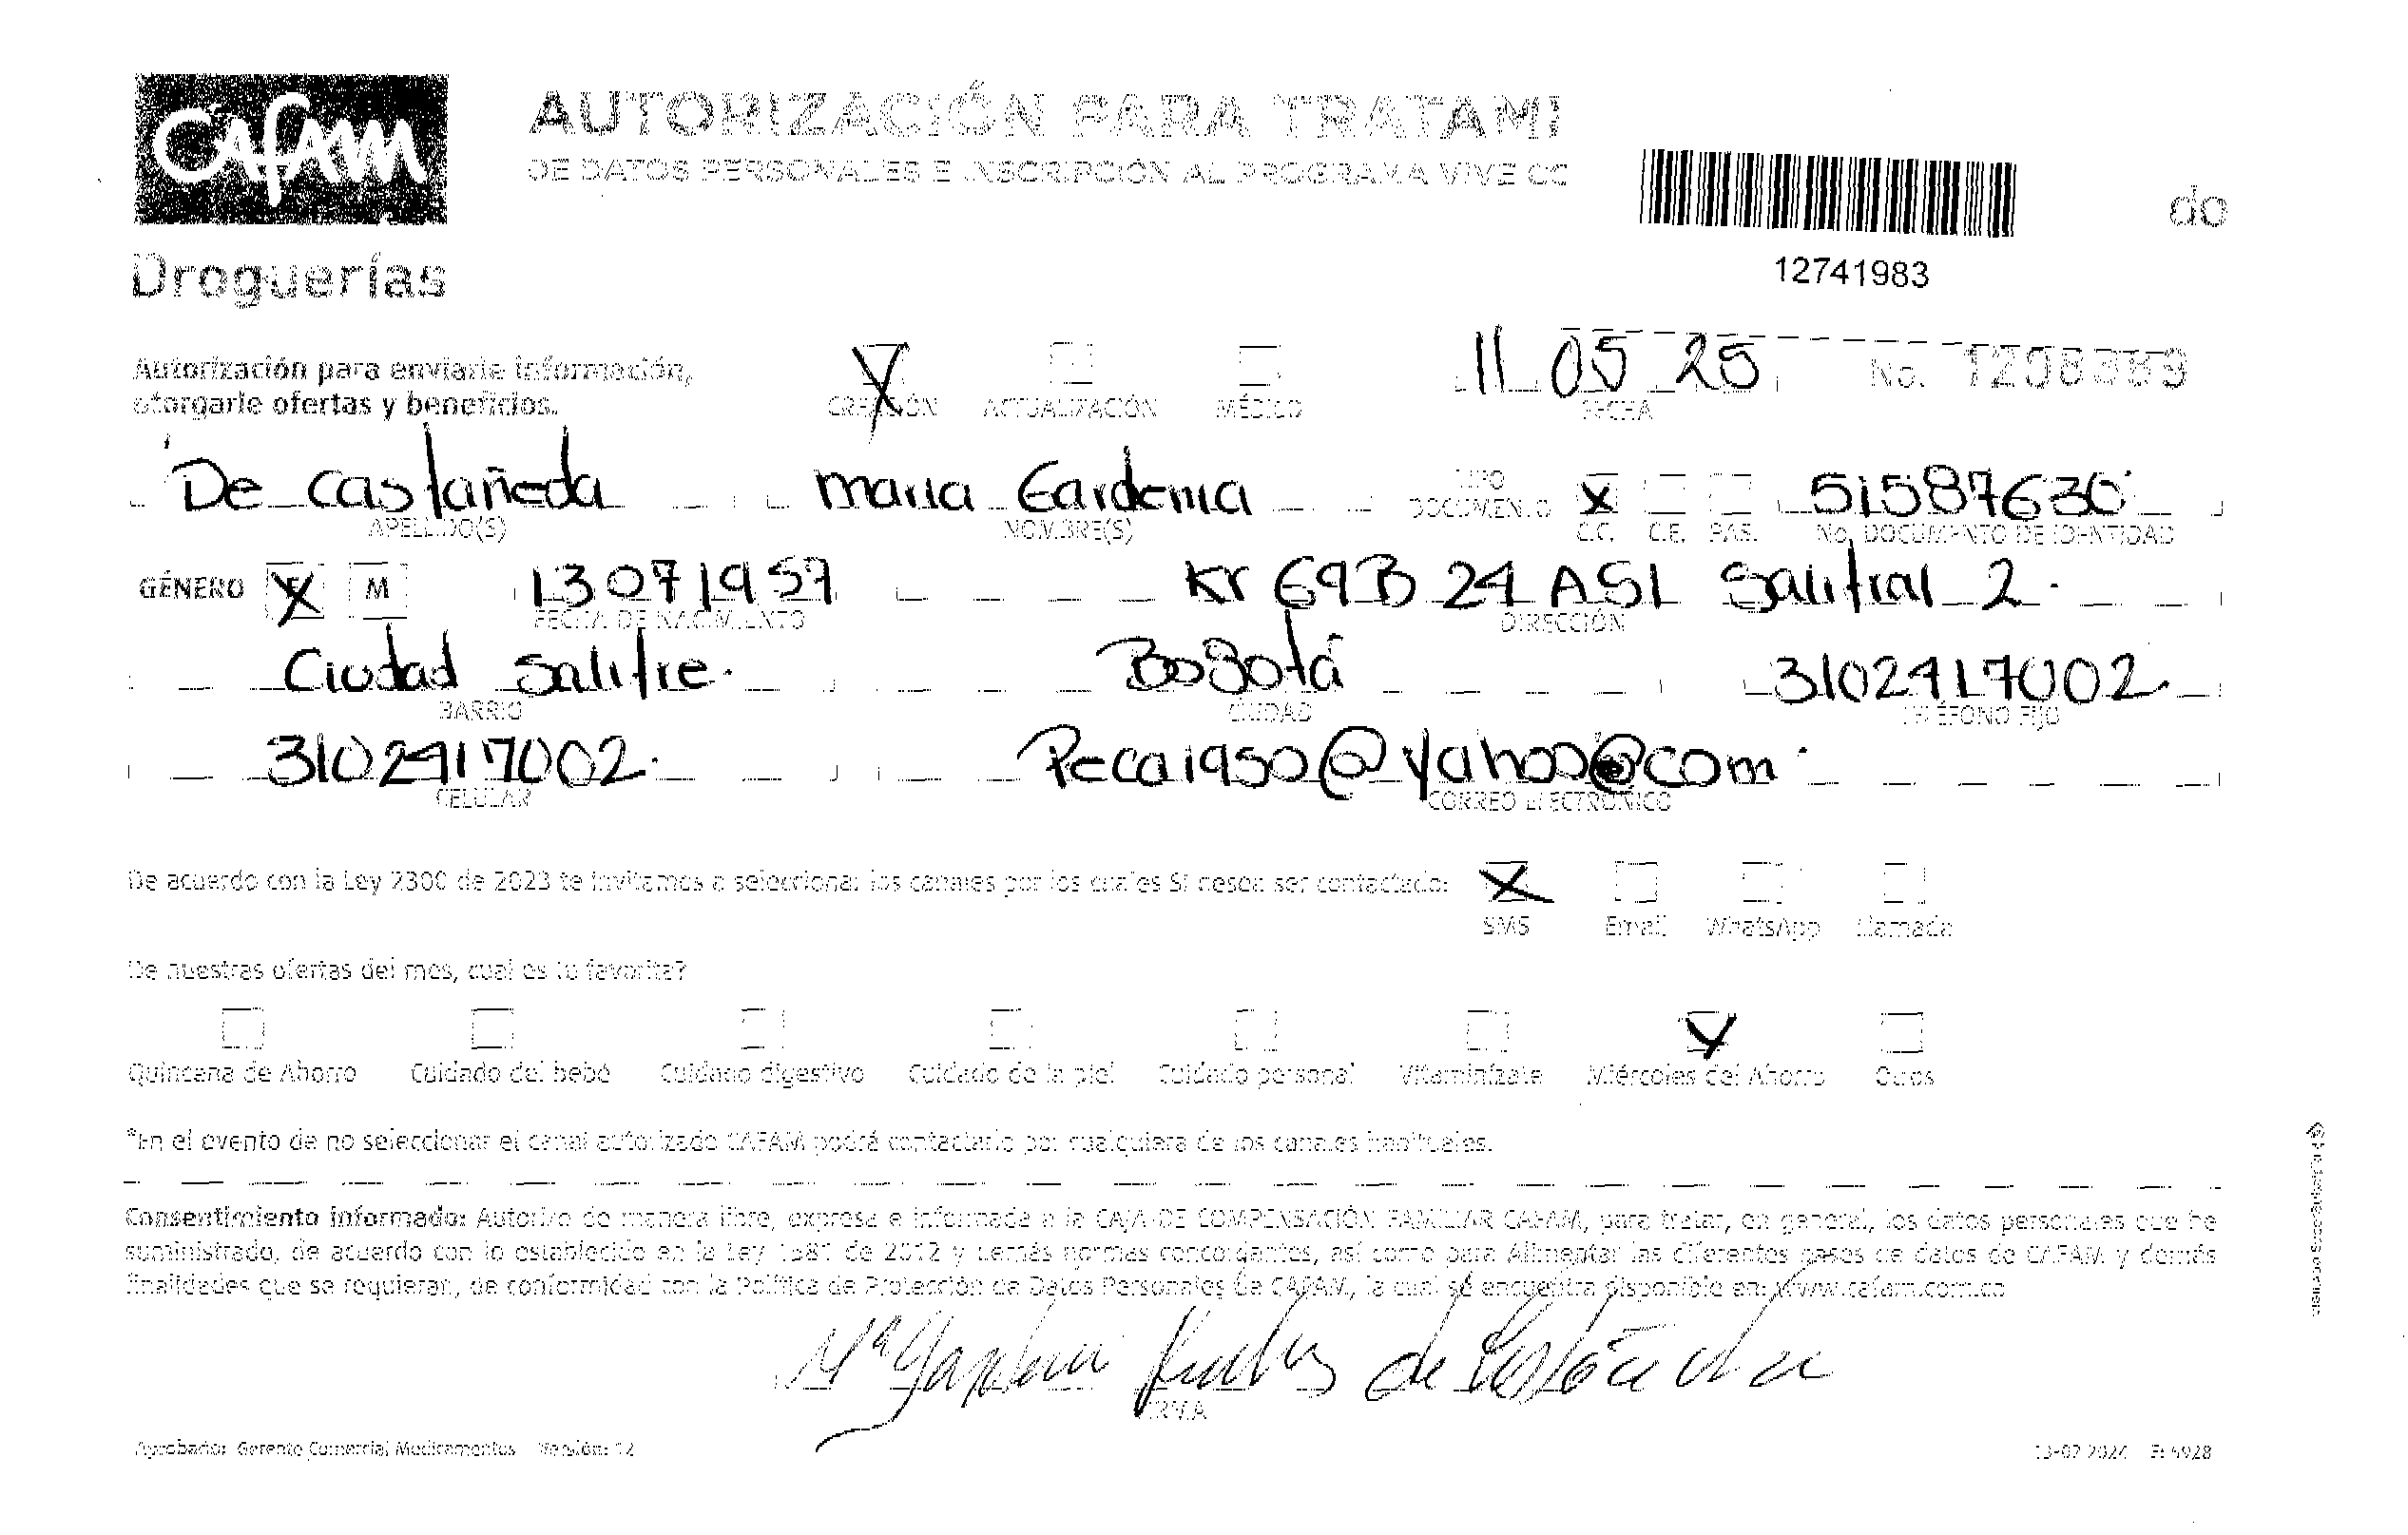 CAfAM
AUTORIZACIÓN PARA TRATAMI
DE DATOS PERSONALES E INSCRIPCIÓN AL PROGRAMA VIVE CO
do
12741983
Droguerías
Autorización para enviarle información,
otorgarle ofertas y beneficios.
X CREACIÓN ACTUALIZACIÓN MÉDICO
11 05 25 FECHA
No.
De castañeda maria Gardenia X 51587630
APELLIDO(S) NOMBRE(S) TIPO DOCUMENTO C.C. C.E. PAS. No. DOCUMENTO DE IDENTIDAD
GÉNERO F X M 13071957 Kr 69B 24 A 51 Salitral 2.
FECHA DE NACIMIENTO DIRECCIÓN
Ciudad Salitre. Bogotá 3102417002.
BARRIO CIUDAD TELÉFONO FIJO
3102417002. Peca1950@yahoo@com.
CELULAR CORREO ELECTRÓNICO
De acuerdo con la Ley 2300 de 2023 te invitamos a seleccionar los canales por los cuales SI desea ser contactado: X
SMS Email WhatsApp Llamada
De nuestras ofertas del mes, cual es tu favorita?
X
Quincena de Ahorro Cuidado del bebé Cuidado digestivo Cuidado de la piel Cuidado personal Vitamínizate Miércoles del Ahorro Otros
*En el evento de no seleccionar el canal autorizado CAFAM podrá contactarlo por cualquiera de los canales habituales.
Consentimiento informado: Autorizo de manera libre, expresa e informada a la CAJA DE COMPENSACIÓN FAMILIAR CAFAM, para tratar, en general, los datos personales que he
suministrado, de acuerdo con lo establecido en la Ley 1581 de 2012 y demás normas concordantes, así como para Alimentar las diferentes bases de datos de CAFAM y demás
finalidades que se requieran, de conformidad con la Política de Protección de Datos Personales de CAFAM, la cual se encuentra disponible en: www.cafam.com.co
Mª de Castañeda
FIRMA
Aprobado: Gerente Comercial Medicamentos Versión: 12
13-02-2024